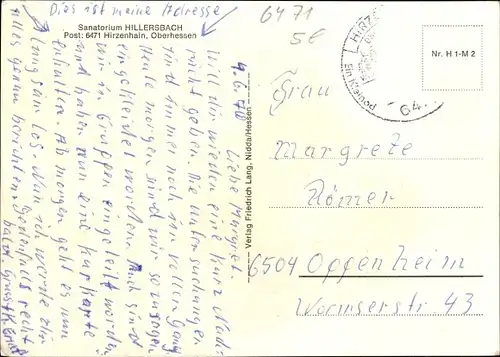 Dies ist meine Adresse
Sanatorium HILLERSBACH
Post: 6471 Hirzenhain, Oberhessen
6471
5e
HIRZE
64
Nr. H 1-M 2
4.6.70
Liebe Margret.
Will dir wieder eine kurz Nach-
richt geben. Die untersuchungen
sind immer noch im vollen Gang
Heute morgen sind wir sozusagen
eingekleidet worden. Auch sind
wir in Gruppen eingeteilt worden
und haben nun eine kurkarte
enthalten. Ab morgen geht es nun
langsam los. Nun ich werde dir
alles genau berichten. Jedenfalls recht
bald. Gruss
Verlag Friedrich Lang, Nidda/Hessen
Frau
Margrete
Römer
6504 Oppenheim
Wormserstr 43